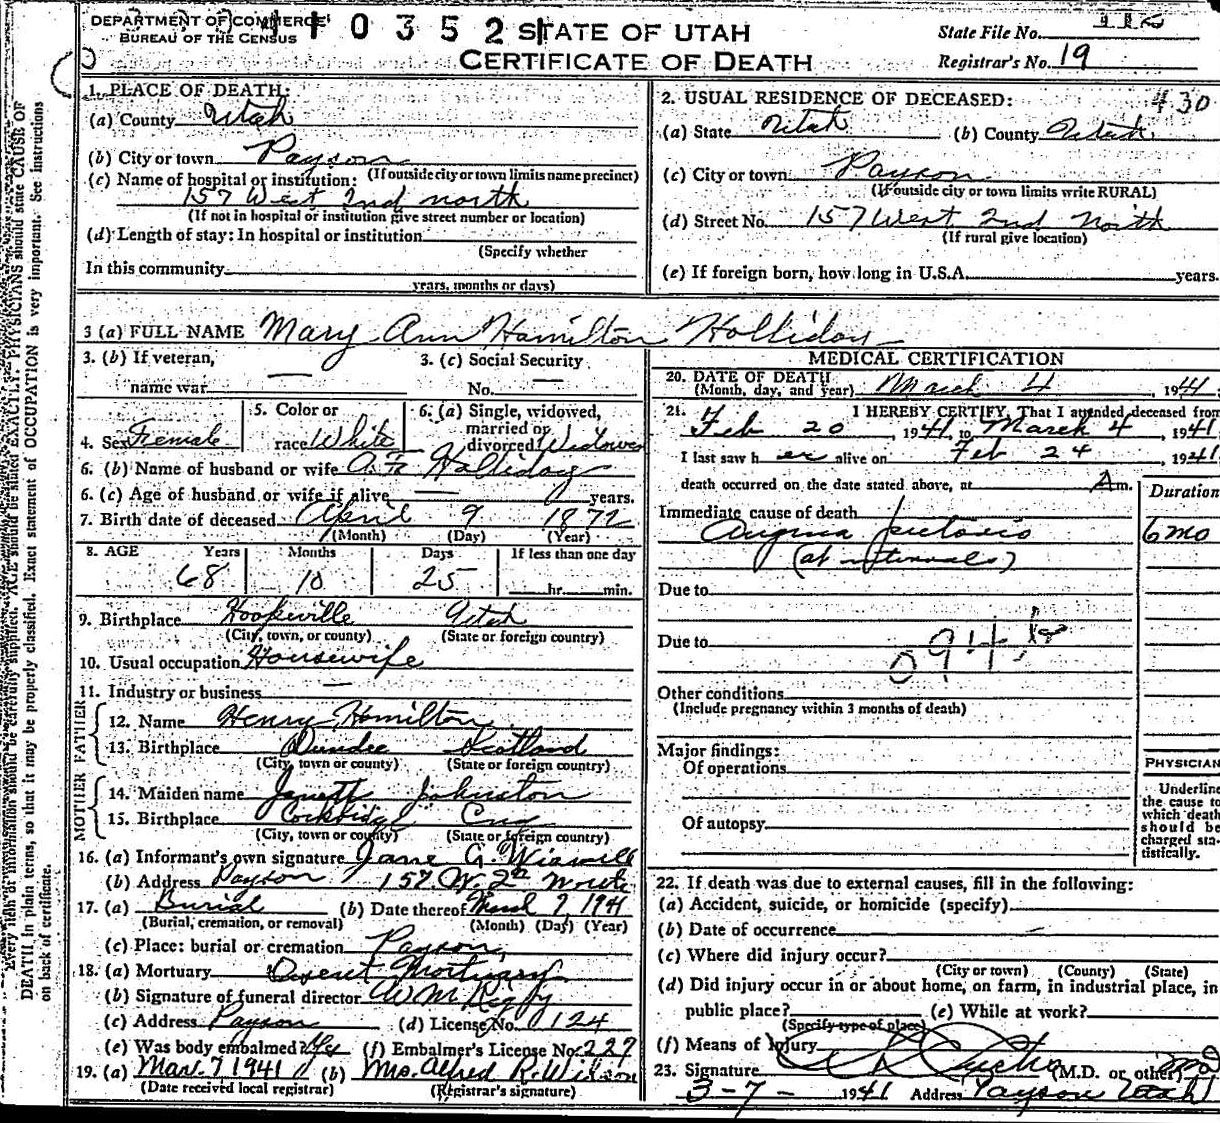 DEPARTMENT OF COMMERCE
BUREAU OF THE CENSUS
1 1 0 3 5 2 1
STATE OF UTAH
CERTIFICATE OF DEATH
State File No. 112
Registrar's No. 19
Every item of information should be carefully supplied. AGE should be stated EXACTLY. PHYSICIANS should state CAUSE OF
DEATH in plain terms, so that it may be properly classified. Exact statement of OCCUPATION is very important. See instructions
on back of certificate.
1. PLACE OF DEATH:
(a) County Utah
(b) City or town Payson
(If outside city or town limits name precinct)
(c) Name of hospital or institution:
157 West 2nd north
(If not in hospital or institution give street number or location)
(d) Length of stay: In hospital or institution
(Specify whether
In this community
years, months or days)
2. USUAL RESIDENCE OF DECEASED: 430
(a) State Utah (b) County Utah
(c) City or town Payson
(If outside city or town limits write RURAL)
(d) Street No. 157 West 2nd North
(If rural give location)
(e) If foreign born, how long in U.S.A. years.
3 (a) FULL NAME Mary Ann Hamilton Holliday
3. (b) If veteran,
name war —
3. (c) Social Security
No. —
4. Sex Female
5. Color or
race White
6. (a) Single, widowed,
married or
divorced Widowed
6. (b) Name of husband or wife Holliday
6. (c) Age of husband or wife if alive — years.
7. Birth date of deceased April 9 1872
(Month) (Day) (Year)
8. AGE Years Months Days If less than one day
68 10 25 hr. min.
9. Birthplace Utah
(City, town, or county) (State or foreign country)
10. Usual occupation Housewife
11. Industry or business —
FATHER
12. Name Henry Hamilton
13. Birthplace Dundee Scotland
(City, town or county) (State or foreign country)
MOTHER
14. Maiden name Janett Johnston
15. Birthplace Eng
(City, town or county) (State or foreign country)
16. (a) Informant's own signature Jane G.
(b) Address Payson 157 W. 2nd North
17. (a) Burial (b) Date thereof March 7, 1941
(Burial, cremation, or removal) (Month) (Day) (Year)
(c) Place: burial or cremation Payson
18. (a) Mortuary Deseret Mortuary
(b) Signature of funeral director W M Rigby
(c) Address Payson (d) License No. 124
(e) Was body embalmed? Yes (f) Embalmer's License No. 227
19. (a) Mar. 7 1941 (b) Mrs. Alfred R. Wilson
(Date received local registrar) (Registrar's signature)
MEDICAL CERTIFICATION
20. DATE OF DEATH
(Month, day, and year) March 4, 1941
21. I HEREBY CERTIFY, That I attended deceased from
Feb 20, 1941, to March 4, 1941
I last saw h er alive on Feb 24, 1941
death occurred on the date stated above, at A m.
Duration
Immediate cause of death
Angina pectoris 6 mo
(at intervals)
Due to
Due to
094
Other conditions
(Include pregnancy within 3 months of death)
Major findings:
Of operations
Of autopsy
PHYSICIAN
Underline
the cause to
which death
should be
charged sta-
tistically.
22. If death was due to external causes, fill in the following:
(a) Accident, suicide, or homicide (specify)
(b) Date of occurrence —
(c) Where did injury occur?
(City or town) (County) (State)
(d) Did injury occur in or about home, on farm, in industrial place, in
public place? (e) While at work?
(Specify type of place)
(f) Means of Injury
23. Signature (M.D. or other) MD
3-7- 1941 Address Payson Utah